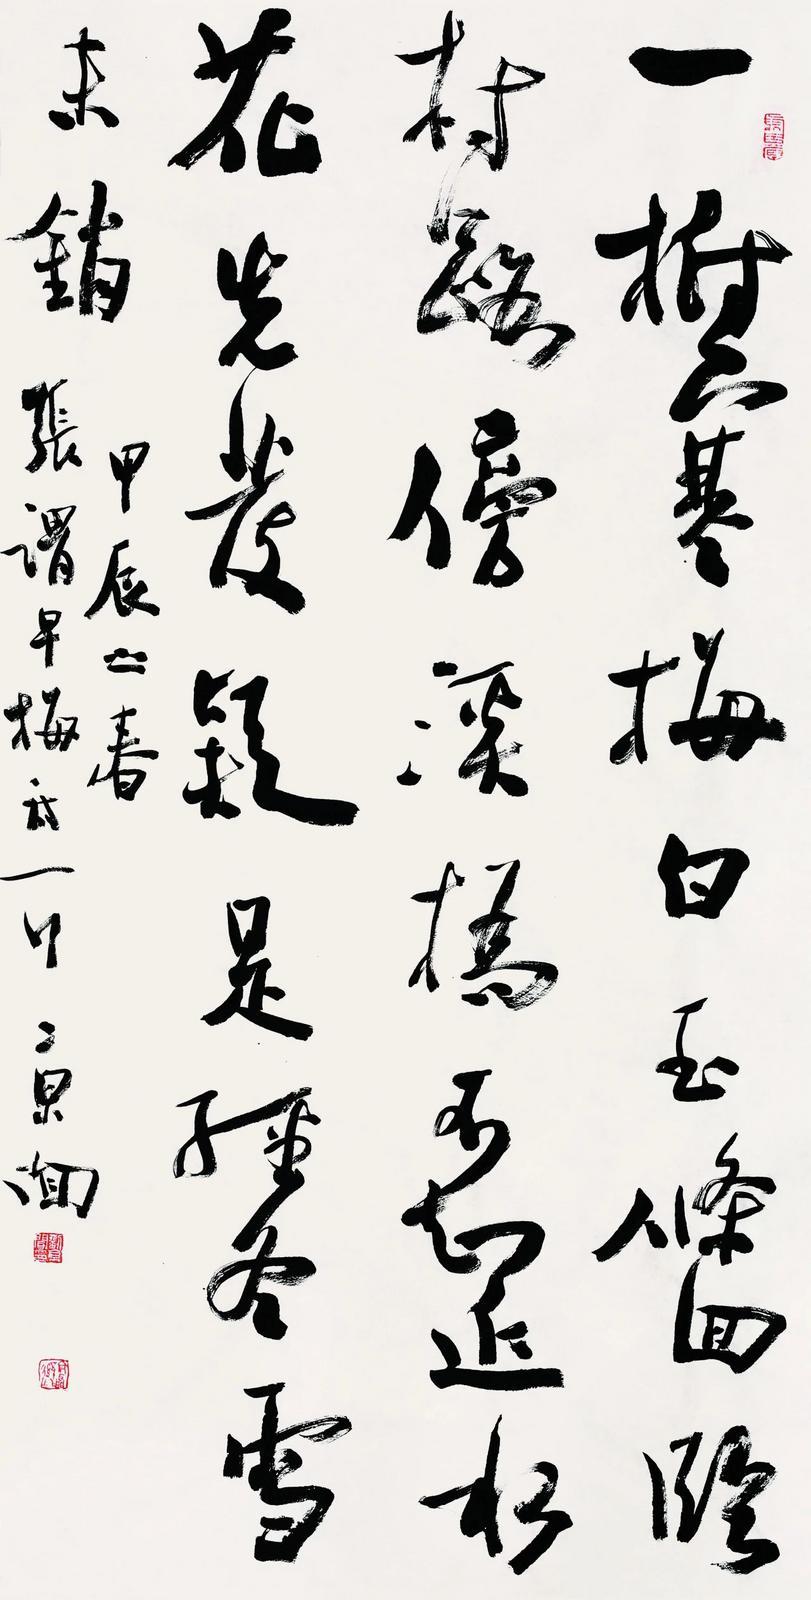 一樹寒梅白玉條迴臨
村路傍溪橋不知近水
花先發疑是經冬雪
未銷
甲辰立春
張謂早梅詩一首